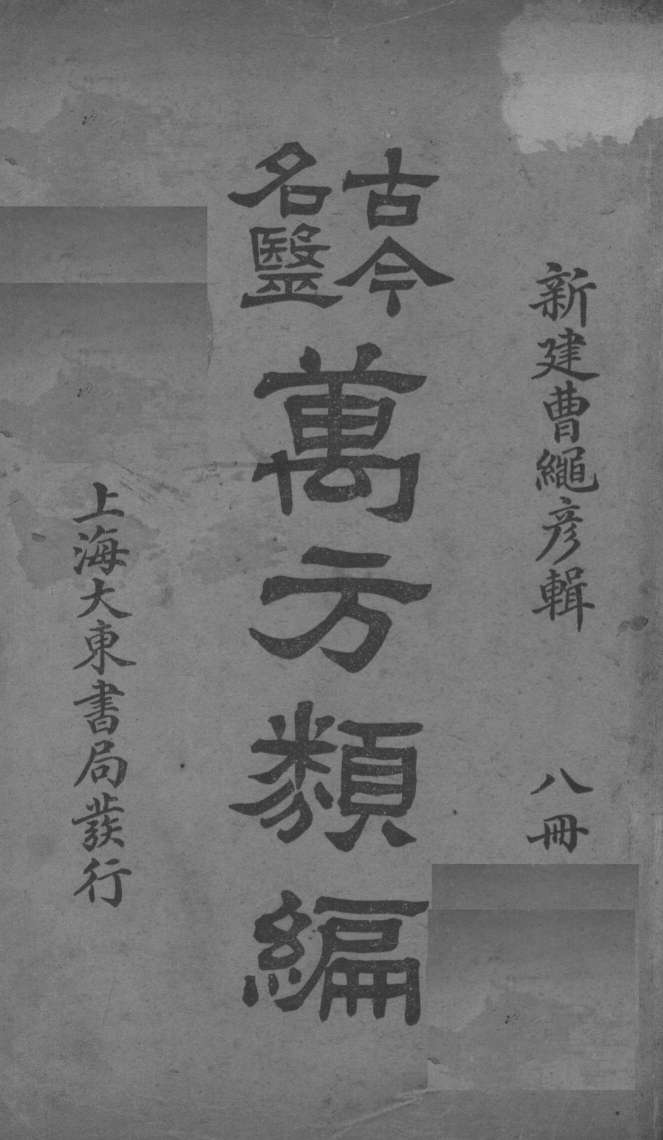 新建曹繩彦輯
八冊
古今
名醫
萬方類編
上海大東書局發行